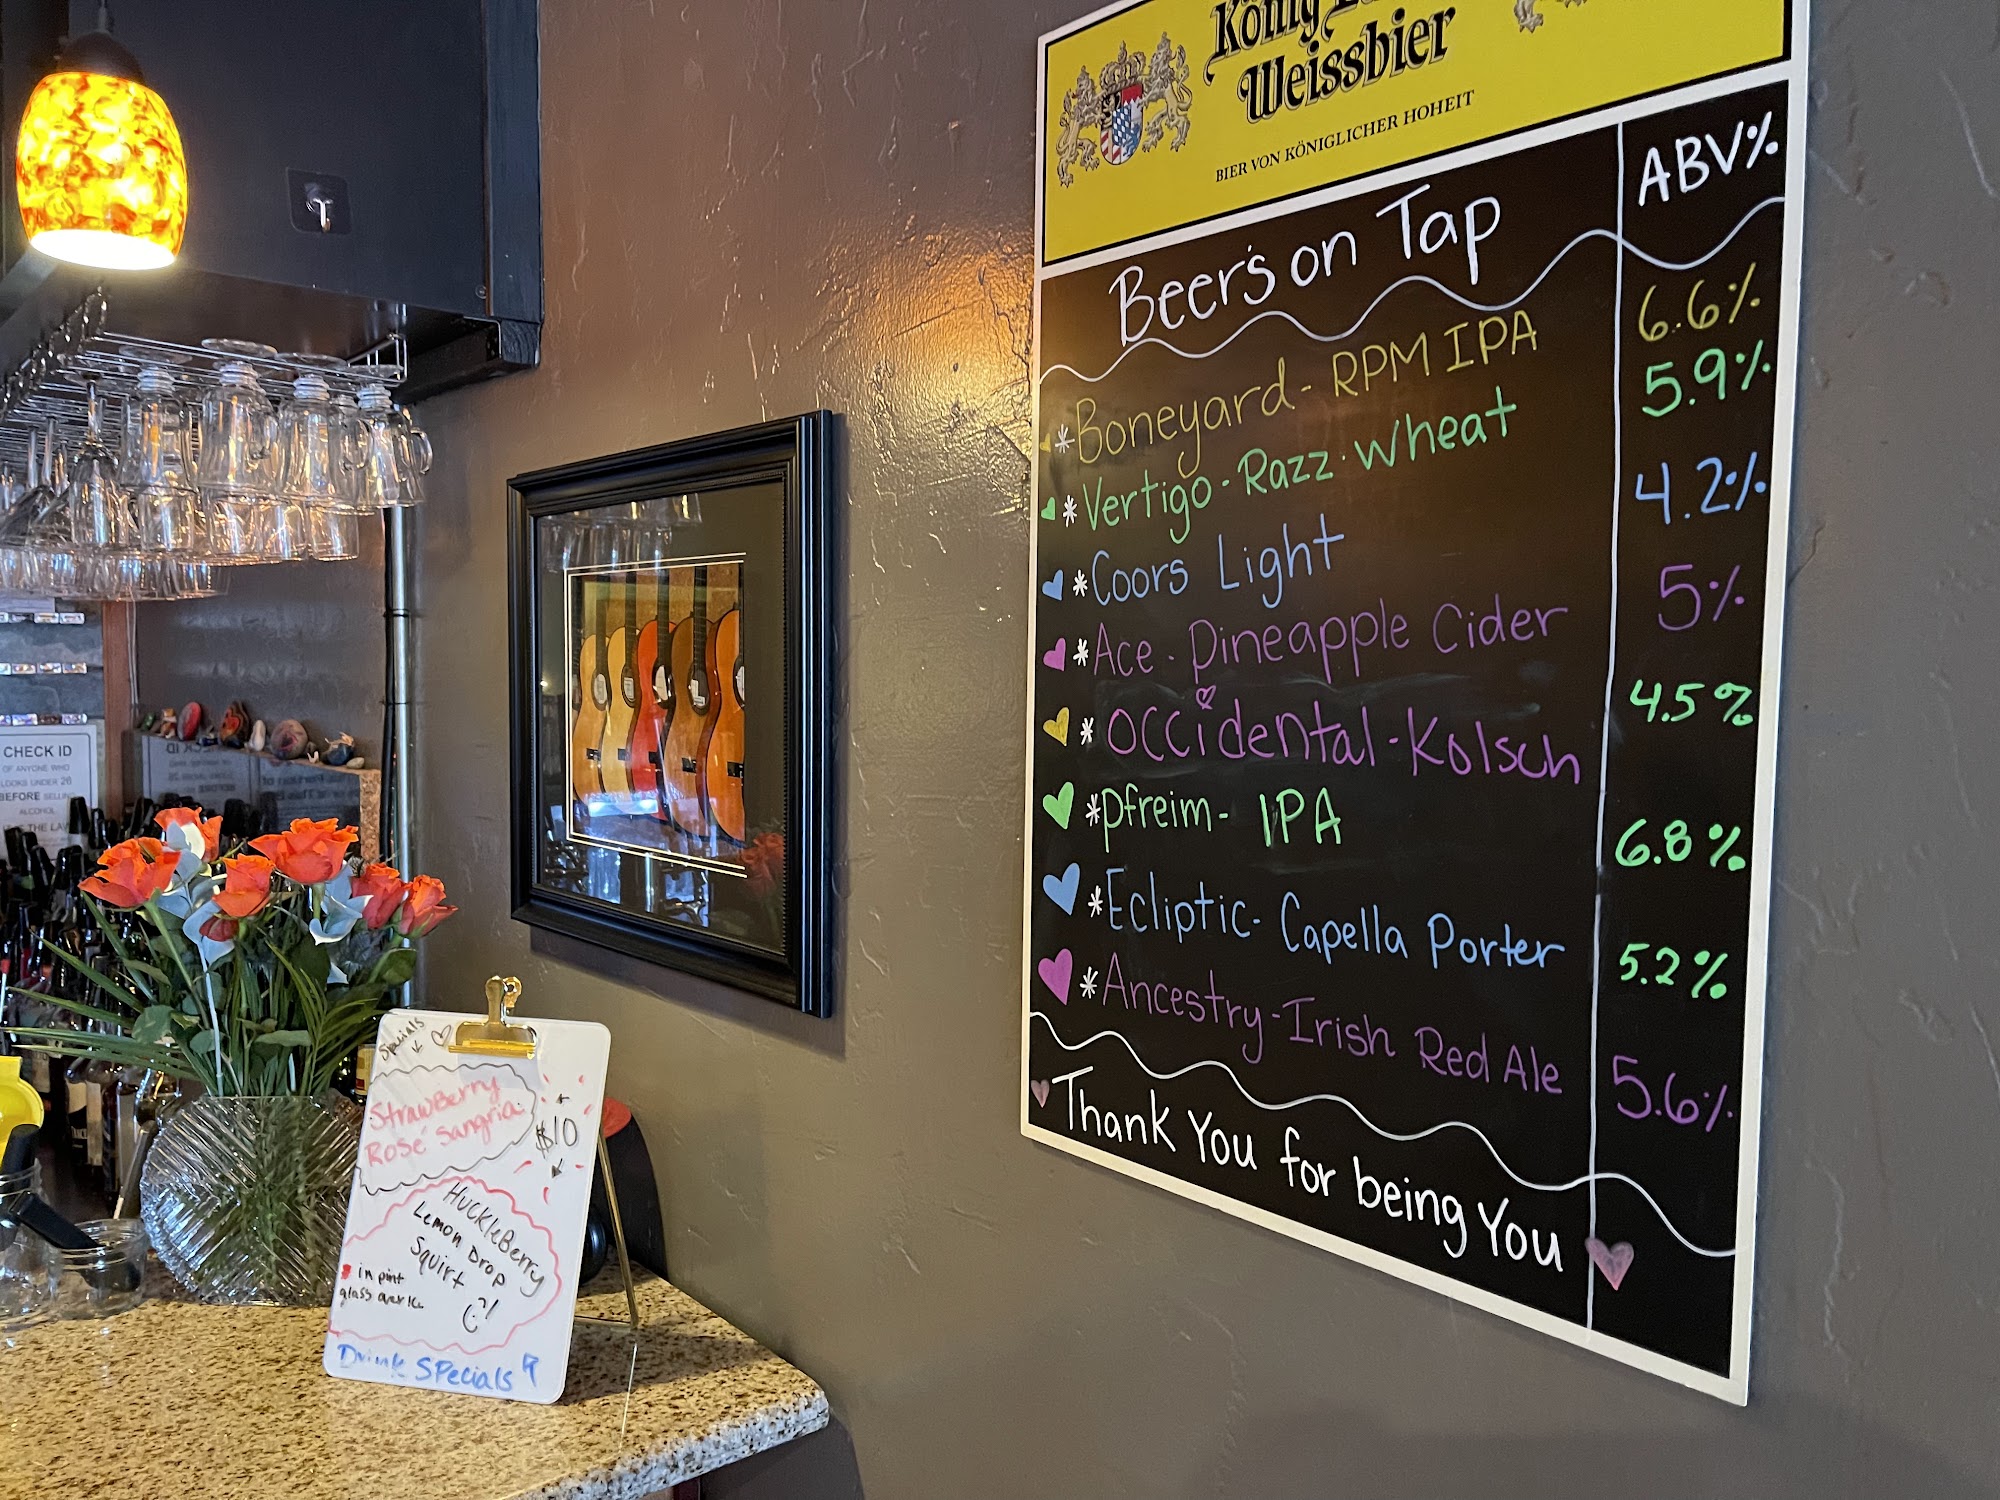 König
Weissbier
BIER VON KÖNIGLICHER HOHEIT
Beer's on Tap ABV%
*Boneyard - RPM IPA 6.6%
*Vertigo - Razz. Wheat 5.9%
*Coors Light 4.2%
*Ace - Pineapple Cider 5%
*Occidental - Kolsch 4.5%
*Pfreim - IPA 6.8%
*Ecliptic - Capella Porter 5.2%
*Ancestry - Irish Red Ale 5.6%
Thank You for being You
CHECK ID
OF ANYONE WHO
LOOKS UNDER 26
BEFORE
ALCOHOL
THE LAW
Specials
Strawberry
Rosé Sangria
$10
Huckleberry
Lemon Drop
Squirt
in pint
glass over ice
Drink Specials